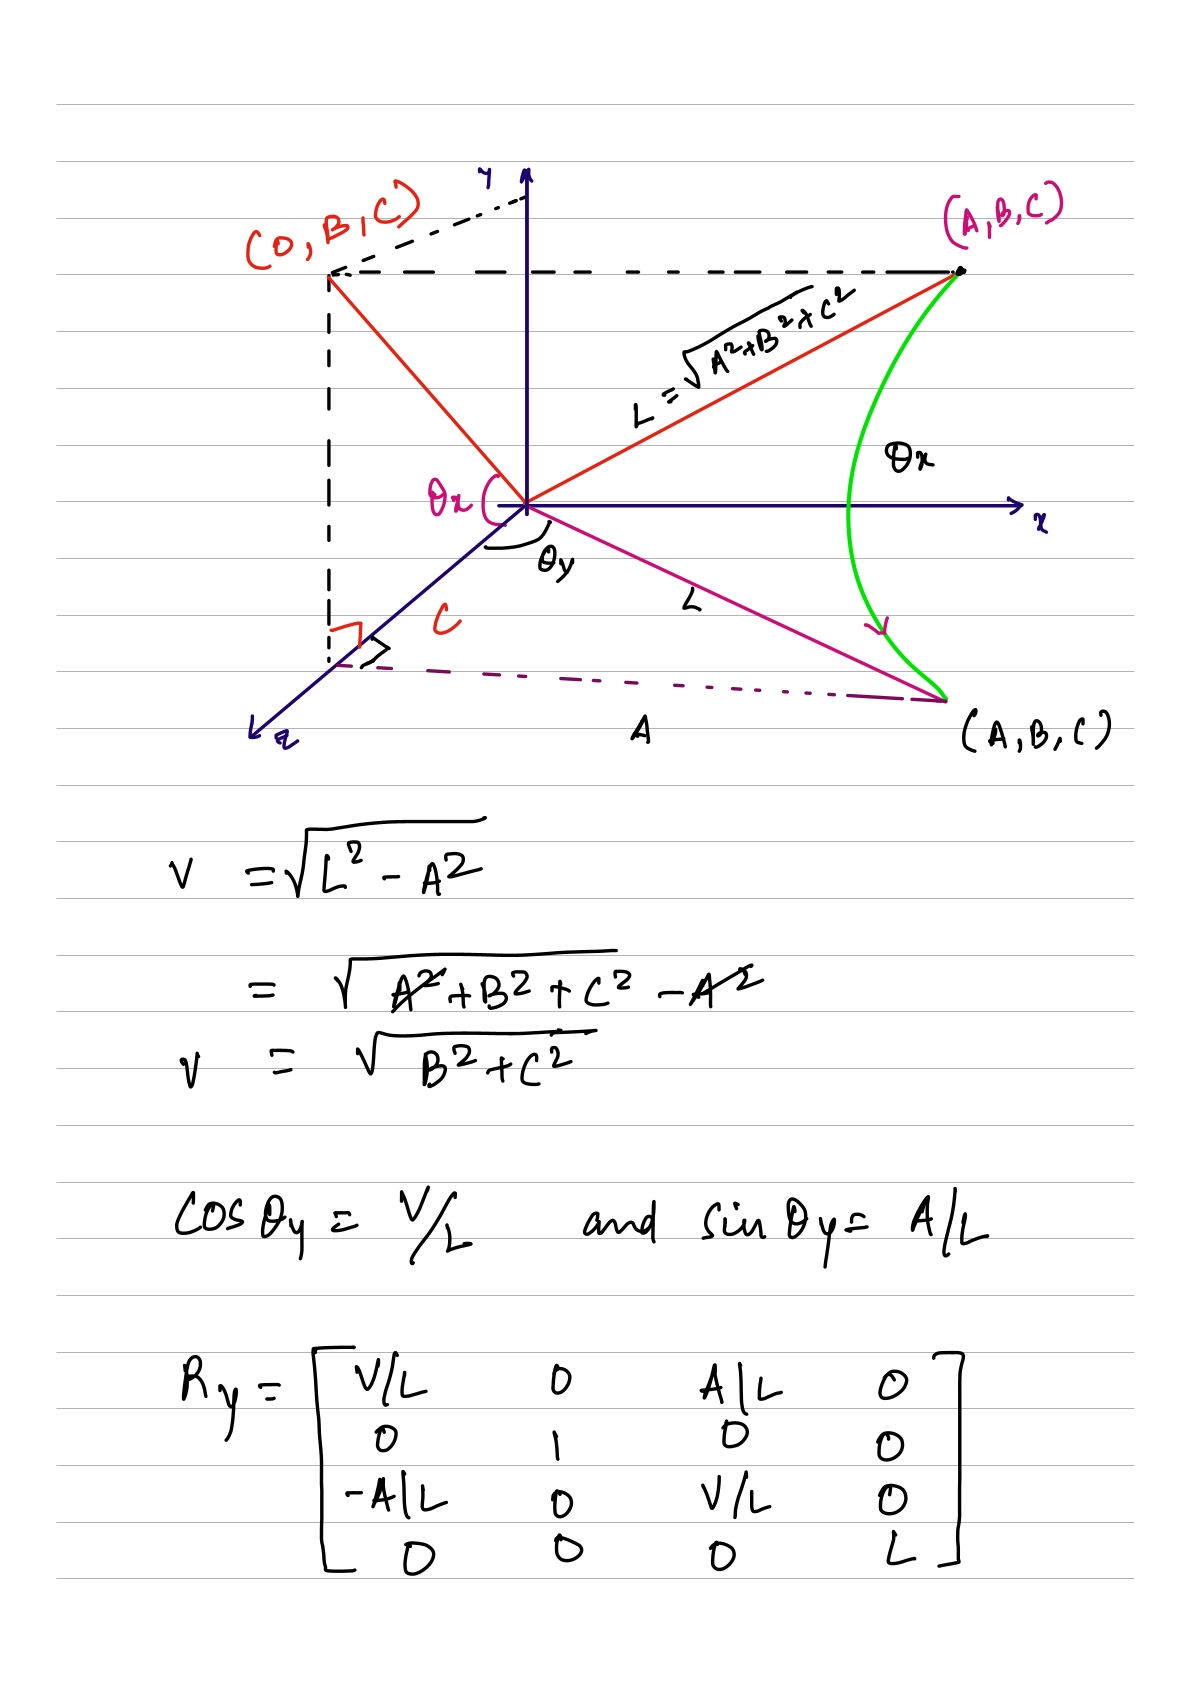 y
(0,B,C)
(A,B,C)
L = √A²+B²+C²
θx
θx
x
θy
L
C
z
A
(A,B,C)
V = √L² - A²
= √A²+B²+C² -A²
V = √B²+C²
cosθy = V/L and sinθy = A/L
Ry = [ V/L 0 A/L 0
0 1 0 0
-A/L 0 V/L 0
0 0 0 L ]